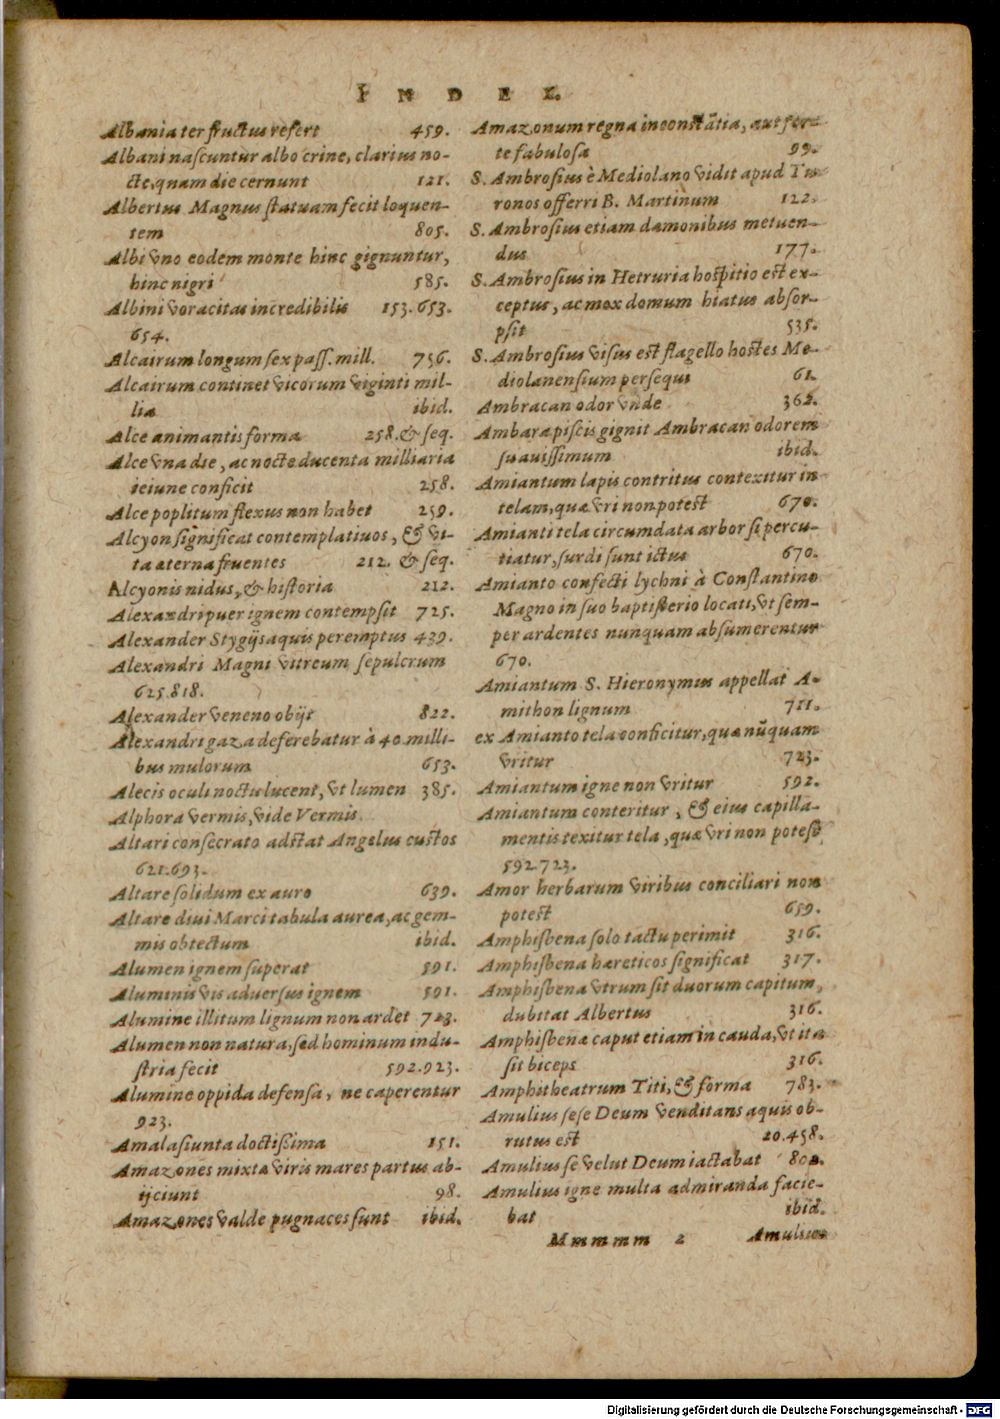 INDEX.
Albania ter fructus refert 459.
Albani nascuntur albo crine, clarius no-
cte, quam die cernunt 121.
Albertus Magnus statuam fecit loquen-
tem 805.
Albi vno eodem monte hinc gignuntur,
hinc nigri 585.
Albini voracitas incredibilis 153. 653.
654.
Alcairum longum sex pass. mill. 756.
Alcairum continet vicorum viginti mil-
lia ibid.
Alce animantis forma 258. & seq.
Alce vna die, ac nocte ducenta milliaria
ieiune conficit 258.
Alce poplitum flexus non habet 259.
Alcyon significat contemplatiuos, & vi-
ta aeterna fruentes 212. & seq.
Alcyonis nidus, & historia 212.
Alexandri puer ignem contempsit 725.
Alexander Stygijs aquis peremptus 439.
Alexandri Magni vitreum sepulcrum
625.818.
Alexander veneno obijt 822.
Alexandri gaza deferebatur à 40 milli-
bus mulorum 653.
Alecis oculi noctu lucent, vt lumen 385.
Alphora vermis, vide Vermis.
Altari consecrato adstat Angelus custos
621.693.
Altare solidum ex auro 639.
Altare diui Marci tabula aurea, ac gem-
mis obtectum ibid.
Alumen ignem superat 591.
Aluminis vis aduersus ignem 591.
Alumine illitum lignum non ardet 723.
Alumen non natura, sed hominum indu-
stria fecit 592.923.
Alumine oppida defensa, ne caperentur
923.
Amalasiunta doctissima 151.
Amazones mixtæ viris mares partus ab-
ijciunt 98.
Amazones valde pugnaces sunt ibid.
Amazonum regna inconstātia, aut for-
te fabulosa 99.
S. Ambrosius è Mediolano vidit apud Tu-
ronos offerri B. Martinum 122.
S. Ambrosius etiam dæmonibus metuen-
dus 177.
S. Ambrosius in Hetruria hospitio est ex-
ceptus, ac mox domum hiatus absor-
psit 535.
S. Ambrosius visus est flagello hostes Me-
diolanensium persequi 61.
Ambracan odor vnde 362.
Ambara piscis gignit Ambracan odorem
suauissimum ibid.
Amiantum lapis contritus contexitur in
telam, quæ vri non potest 670.
Amianti tela circumdata arbor si percu-
tiatur, surdi sunt ictus 670.
Amianto confecti lychni à Constantino
Magno in suo baptisterio locati, vt sem-
per ardentes nunquam absumerentur
670.
Amiantum S. Hieronymus appellat A-
mithon lignum 711.
ex Amianto tela conficitur, quæ nūquam
vritur 723.
Amiantum igne non vritur 592.
Amiantum conteritur, & eius capilla-
mentis texitur tela, quæ vri non potest
592.723.
Amor herbarum viribus conciliari non
potest 659.
Amphisbena solo tactu perimit 316.
Amphisbena hæreticos significat 317.
Amphisbena vtrum sit duorum capitum,
dubitat Albertus 316.
Amphisbenæ caput etiam in cauda, vt ita
sit biceps 316.
Amphitheatrum Titi, & forma 783.
Amulius sese Deum venditans aquis ob-
rutus est 20.458.
Amulius se velut Deum iactabat 802.
Amulius igne multa admiranda facie-
bat ibid.
Mmmmm 2 Amulius
Digitalisierung gefördert durch die Deutsche Forschungsgemeinschaft - DFG